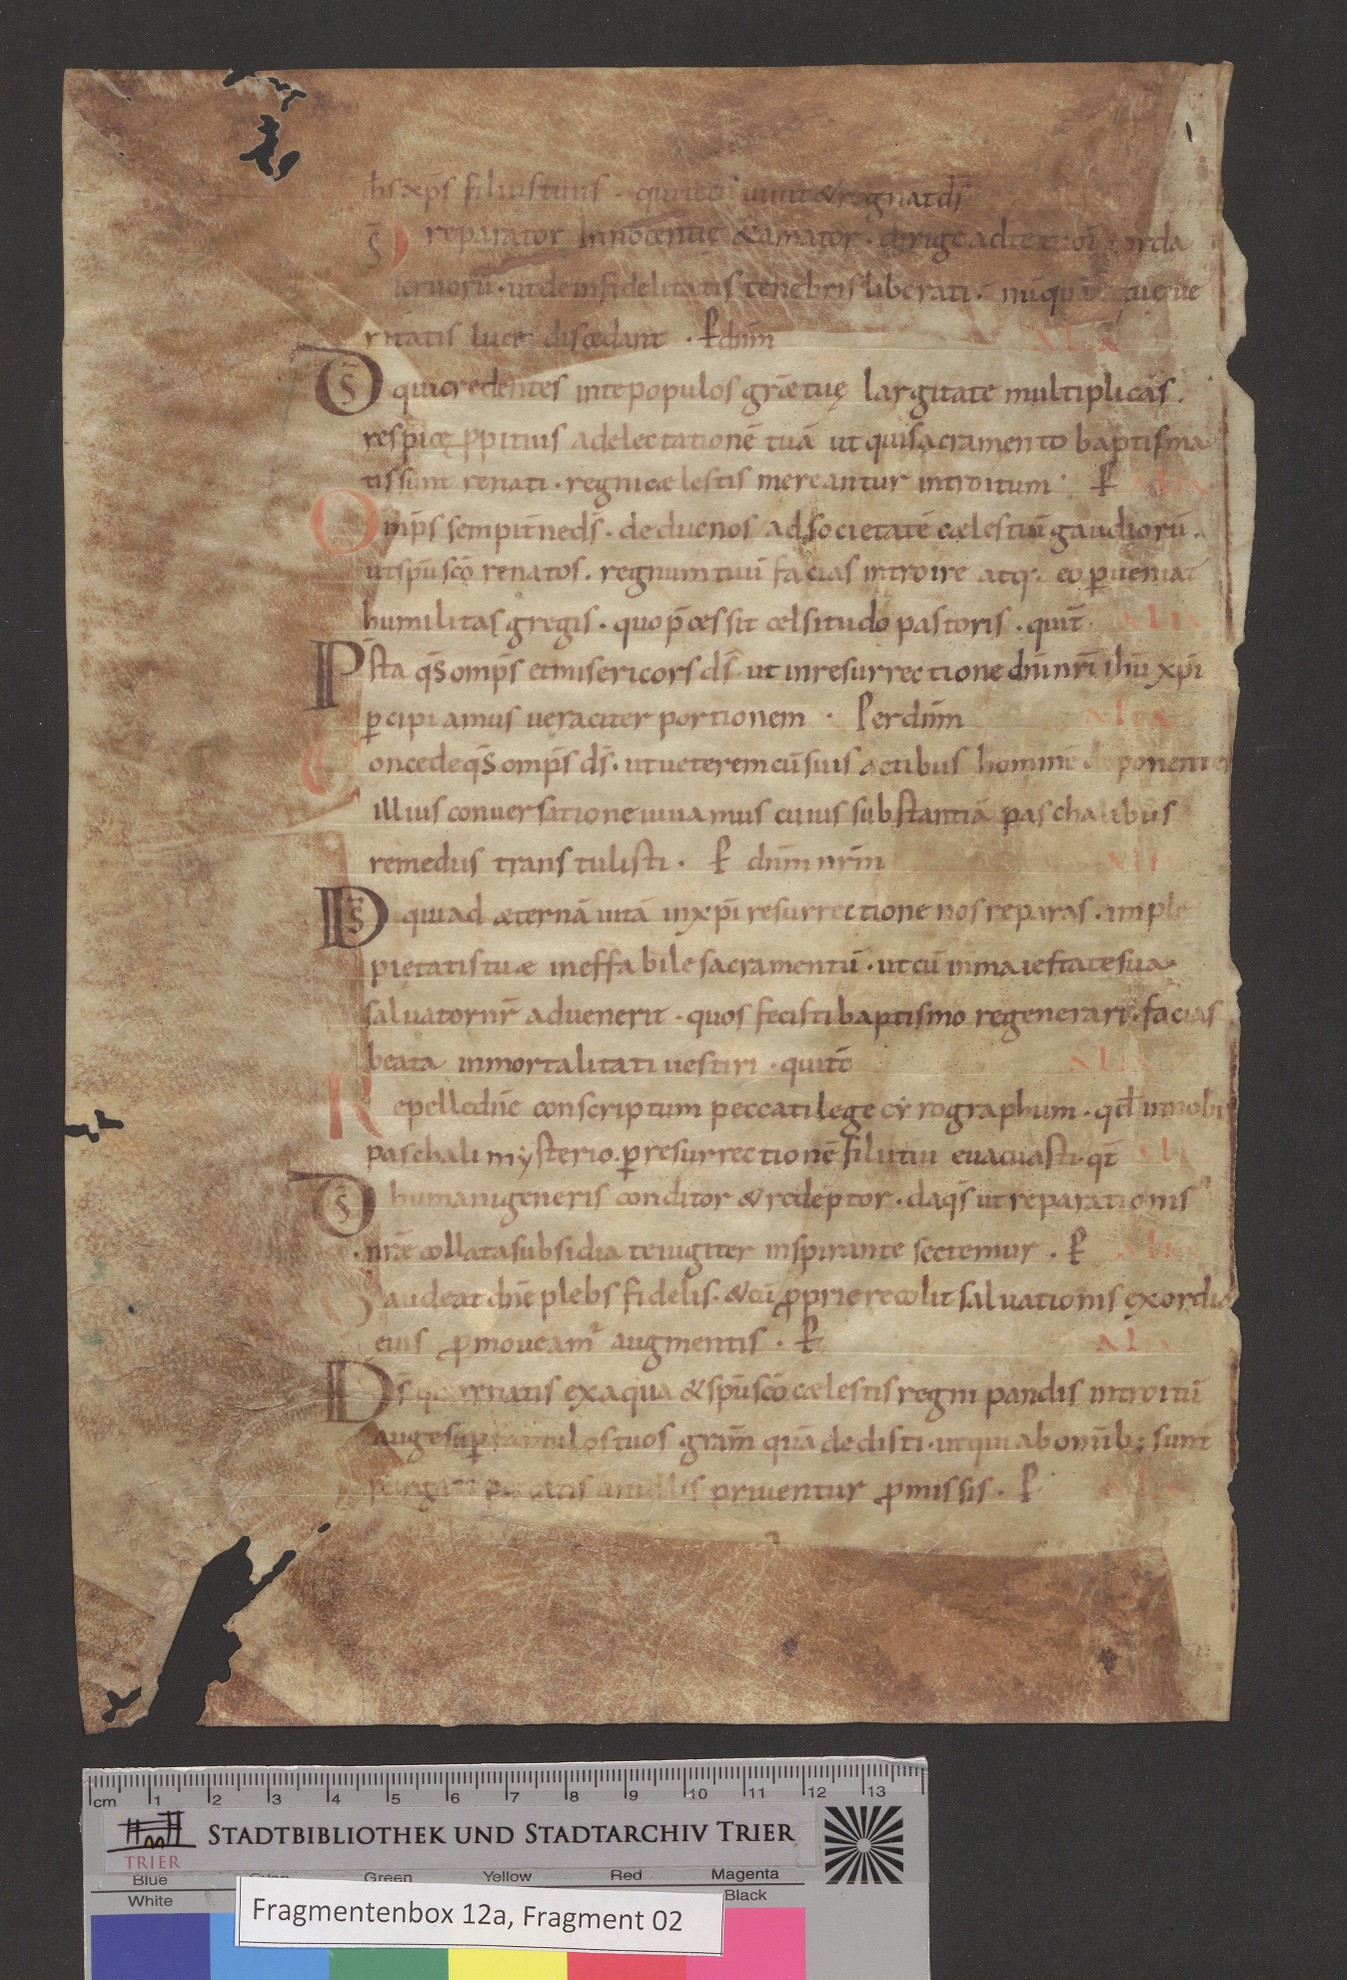 ih̄s xp̄s filius tuus · qui tecū uiuit & regnat d̄s
D̄s reparator innocentię & amator · dirige ad te tuoꝝ corda
seruorū · ut de infidelitatis tenebris liberati · nūquā tuę ue
ritatis luce discedant · P̄ dn̄m ALIA
D̄s qui credentes in te populos grāe tuę largitate multiplicas ·
respice ꝓpitius ad electationē tuā ut qui sacramento baptisma
tis sunt renati · regni cælestis mereantur introitum · P̄ ALIA
Omp̄s sempit̄ne d̄s · deduc nos ad societatē cælestiū gaudiorū ·
ut sp̄u sc̄o renatos · regnum tuū facias introire atq; eo ꝑueniat
humilitas gregis · quo p̄cessit celsitudo pastoris · qui t̄ ALIA
P̄sta q̄s omp̄s et misericors d̄s · ut in resurrectione dn̄i nr̄i ih̄u xp̄i
ꝑcipiamus ueraciter portionem · Per dn̄m ALIA
Concede q̄s omp̄s d̄s · ut ueterem cū suis actibus hominē deponentes
illius conuersatione uiuamus cuius substantiā paschalibus
remediis transtulisti · P̄ dn̄m nr̄m ALIA
D̄s qui ad æternā uitā in xp̄i resurrectione nos reparas · imple
pietatis tuæ ineffabile sacramentū · ut cū in maiestate sua
saluator nr̄ aduenerit · quos fecisti baptismo regenerari · facias
beata inmortalitati uestiri · qui tē ALIA
Repelle dn̄e conscriptum peccati lege cyrographum · qd̄ in nobis
paschali mysterio · ꝑ resurrectionē filii tui euacuasti · q̄ t̄ ALIA
D̄s humani generis conditor & redēptor · da q̄s ut reparationis
nr̄æ collata subsidia te iugiter inspirante sectemur · P̄ ALIA
Gaudeat dn̄e plebs fidelis · & cū ꝓprie recolit saluationis exordia
eius ꝓmoueamr̄ augmentis · P̄ ALIA
D̄s qui renatis ex aqua & sp̄u sc̄o cælestis regni pandis introitū
auge suꝑ famulos tuos gratiā quā dedisti · ut qui ab omīb; sunt
purgati peccatis nullis priuentur ꝓmissis · P̄ ALIA
cm 1 2 3 4 5 6 7 8 9 10 11 12 13
STADTBIBLIOTHEK UND STADTARCHIV TRIER
TRIER
Blue Green Yellow Red Magenta
White Black
Fragmentenbox 12a, Fragment 02